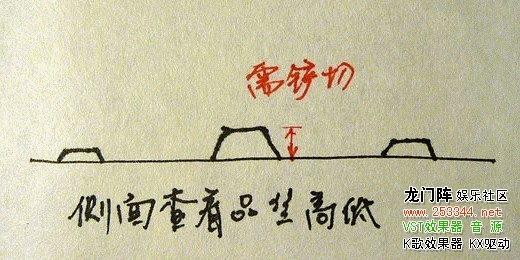 需锉切
侧面查看品丝高低
龙门阵 娱乐社区
www.253344.net
VST效果器 音 源
K歌效果器 KX驱动